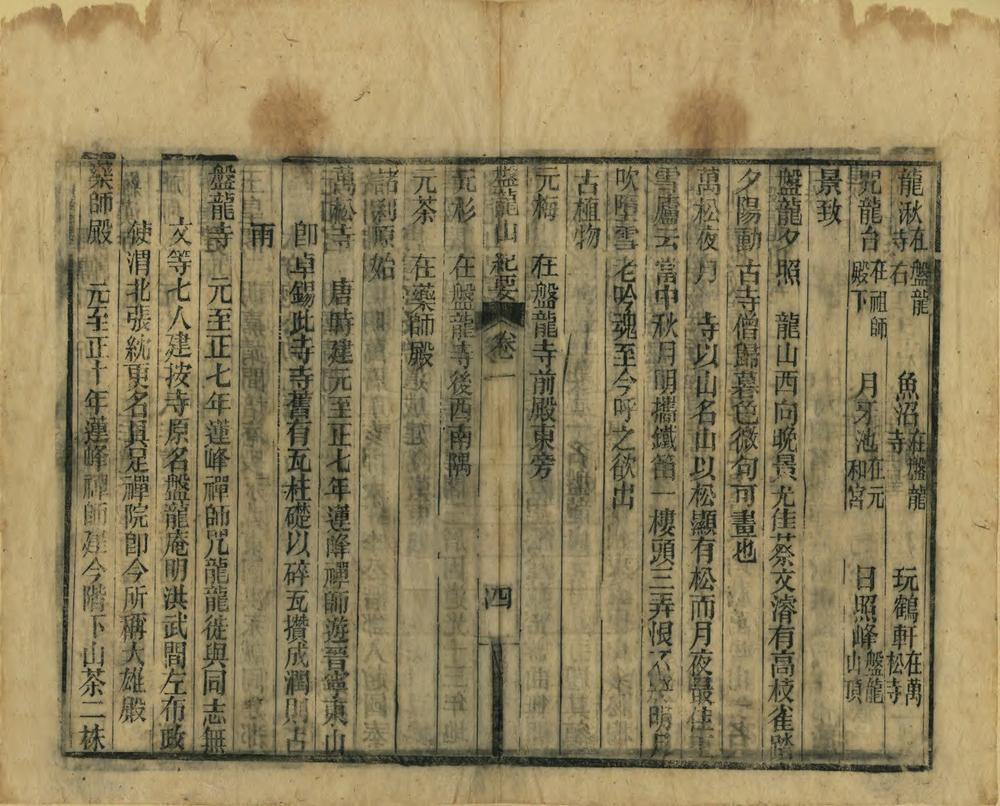 龍湫在盤龍寺右 魚沼在盤龍寺 玩鶴軒在萬松寺
咒龍台在祖師殿下 月牙池在元和宮 日照峰盤龍山頂
景致
盤龍夕照 龍山西向晚景尤佳蔡文濬有高枝雀踏
夕陽動古寺僧歸暮色微句可畫也
萬松夜月 寺以山名山以松顯有松而月夜最佳
雪廬云當中秋月明攜鐵笛一樓頭三弄恨不 明月
吹墮雪老吟魂至今呼之欲出
古植物
元梅 在盤龍寺前殿東旁
盤龍山紀要 卷一 四
元杉 在盤龍寺後西南隅
元茶 在藥師殿
諸刹原始
萬松寺 唐時建元至正七年蓮峰禪師遊晉寧東山
卽卓錫此寺寺舊有瓦柱礎以碎瓦攢成潤則占
雨
盤龍寺 元至正七年蓮峰禪師咒龍龍徙與同志無
文等七人建按寺原名盤龍庵明洪武間左布政
使渭北張紞更名具足禪院卽今所稱大雄殿
藥師殿 元至正十年蓮峰禪師建今階下山茶二株